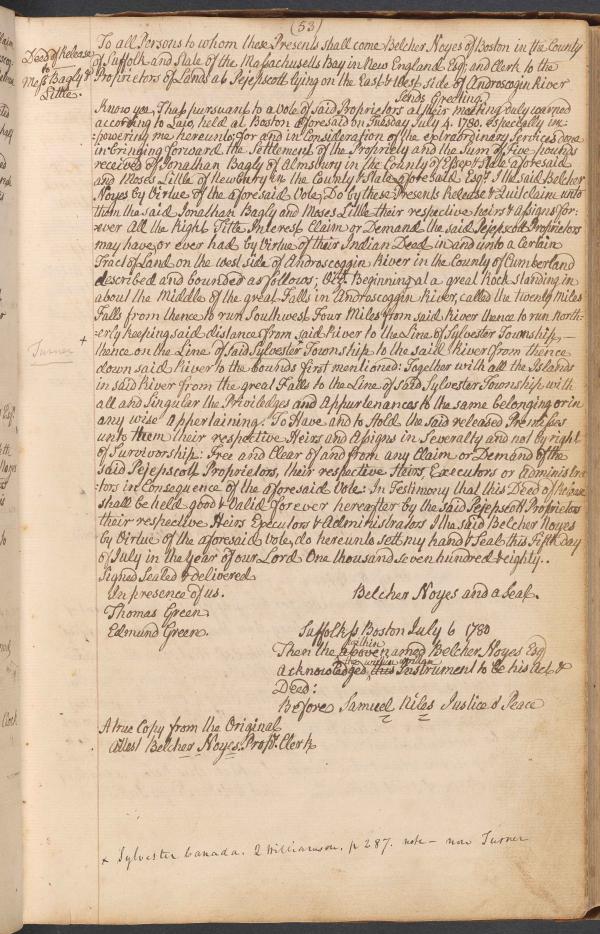 (53)
Deed of Release
to
Mess.rs Bagly &
Little.
To all Persons to whom these Presents shall come Belcher Noyes of Boston in the County
of Suffolk and State of the Massachusetts Bay in New England Esq; and Clerk to the
Proprietors of Lands at Pejepscott lying on the East & West side of Androscogin River
Sends Greeting
Know you, That pursuant to a Vote of said Proprietors at their Meeting duly warned
according to Law, held at Boston aforesaid on Tuesday July 4. 1780. especially im-
:powering me hereunto: for and in Consideration of the extraordinary Services done
in bringing forward the Settlement of the Propriety and the Sum of Five pounds
received of Jonathan Bagly of Almsbury in the County of Essex & State aforesaid
and Moses Little of Newbury in the County & State aforesaid Esq.rs I the said Belcher
Noyes by Virtue of the aforesaid Vote, Do by these Presents Release & Quitclaim unto
them the said Jonathan Bagly and Moses Little their respective heirs & Assigns for:
:ever All the Right Title Interest Claim or Demand the said Pejepscott Proprietors
may have or ever had by Virtue of their Indian Deed in and unto a Certain
Tract of Land on the west side of Androscoggin River in the County of Cumberland
described and bounded as follows; Viz.t Beginning at a great Rock standing in
about the Middle of the great Falls in Androscoggin River, called the twenty Miles
Falls from thence to run Southwest Four Miles from said River thence to run North-
:erly keeping said distance from said River to the Line of Sylvester Township,—
Turner +
thence on the Line of said Sylvester Township to the said River from thence
down said River to the bounds first mentioned: Together with all the Islands
in said River from the great Falls to the Line of said Sylvester Township with
all and Singular the Priviledges and Appurtenances to the same belonging or in
any wise Appertaining. To Have and to Hold the said released Premisses
unto them their respective Heirs and Assigns in Severalty and not by right
of Survivorship: Free and Clear of and from any Claim or Demand of the
said Pejepscott Proprietors, their respective Heirs, Executors or Administra
:tors in Consequence of the aforesaid Vote: In Testimony that this Deed of Release
shall be held good & Valid forever hereafter by the said Pejepscott Proprietors
their respective Heirs Executors & Administrators I the said Belcher Noyes
by Virtue of the aforesaid vote, do hereunto sett my hand & Seal this Fifth day
of July in the Year of our Lord One thousand seven hundred & eighty..
Signed Sealed & delivered
In presence of us. Belcher Noyes and a Seal.
Thomas Green
Edmund Green. Suffolk ss Boston July 6 1780
within
Then the above named Belcher Noyes Esq
the within written
acknowledged this Instrument to be his Act &
Deed:
Before Samuel Niles Justice of Peace
A true Copy from the Original
Attest Belcher Noyes. Prop.rs Clerk
+ Sylvester Canada. 2 Williamson. p 287. note — now Turner